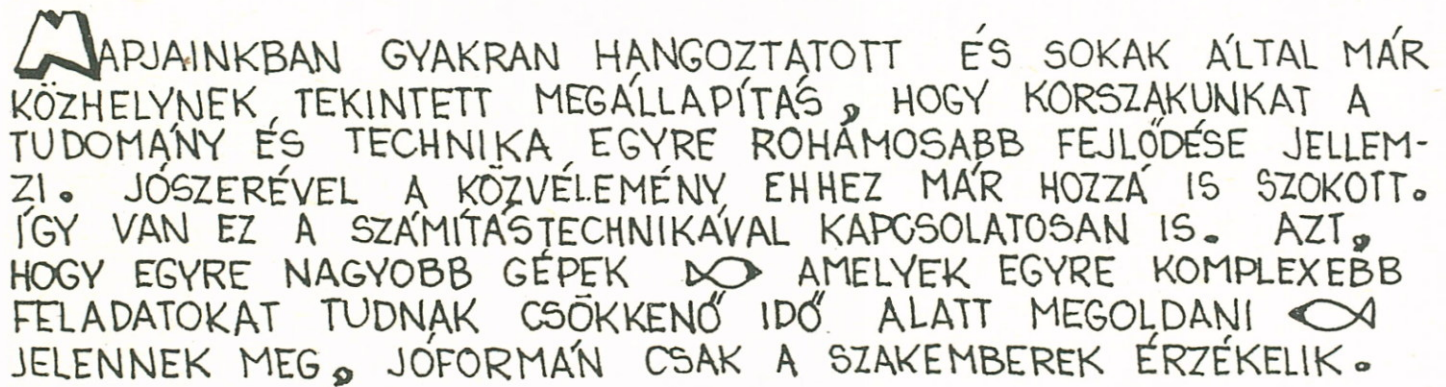 NAPJAINKBAN GYAKRAN HANGOZTATOTT ÉS SOKAK ÁLTAL MÁR
KÖZHELYNEK TEKINTETT MEGÁLLAPÍTÁS, HOGY KORSZAKUNKAT A
TUDOMÁNY ÉS TECHNIKA EGYRE ROHAMOSABB FEJLŐDÉSE JELLEM-
ZI. JÓSZERÉVEL A KÖZVÉLEMÉNY EHHEZ MÁR HOZZÁ IS SZOKOTT.
ÍGY VAN EZ A SZÁMÍTÁSTECHNIKÁVAL KAPCSOLATOSAN IS. AZT,
HOGY EGYRE NAGYOBB GÉPEK AMELYEK EGYRE KOMPLEXEBB
FELADATOKAT TUDNAK CSÖKKENŐ IDŐ ALATT MEGOLDANI
JELENNEK MEG, JÓFORMÁN CSAK A SZAKEMBEREK ÉRZÉKELIK.